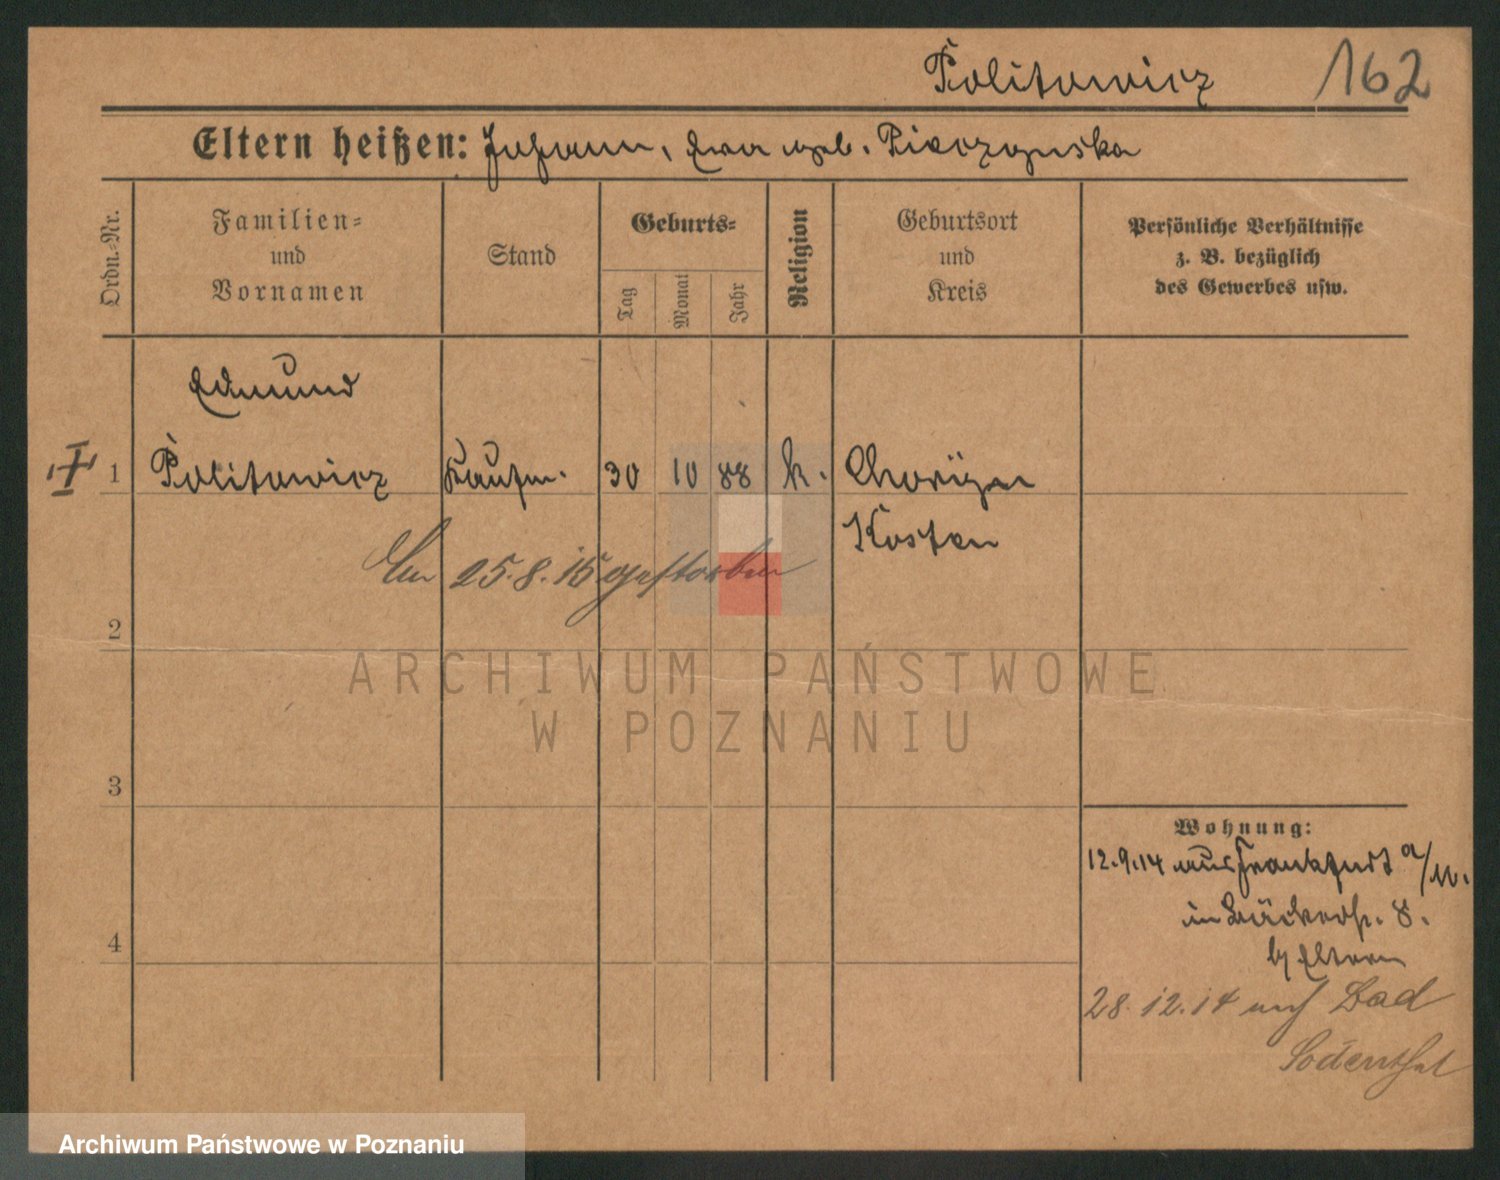 Politowicz 162
Eltern heißen: Johann, Eva geb. Pierzynska
Ordn.-Nr.
Familien- und Vornamen
Stand
Geburts-
Tag Monat Jahr
Religion
Geburtsort und Kreis
Persönliche Verhältnisse
z. B. bezüglich
des Gewerbes usw.
Edmund
1 Politowicz Kaufm. 30 10 88 k.
Kosten
Am 25.8.15 gestorben
2
3
4
Wohnung:
12.9.14 aus Frankfurt a/M.
in Bäckerstr. 8.
b/ Eltern
28.12.14 nach Bad
Sodenthal
ARCHIWUM PAŃSTWOWE
W POZNANIU
Archiwum Państwowe w Poznaniu